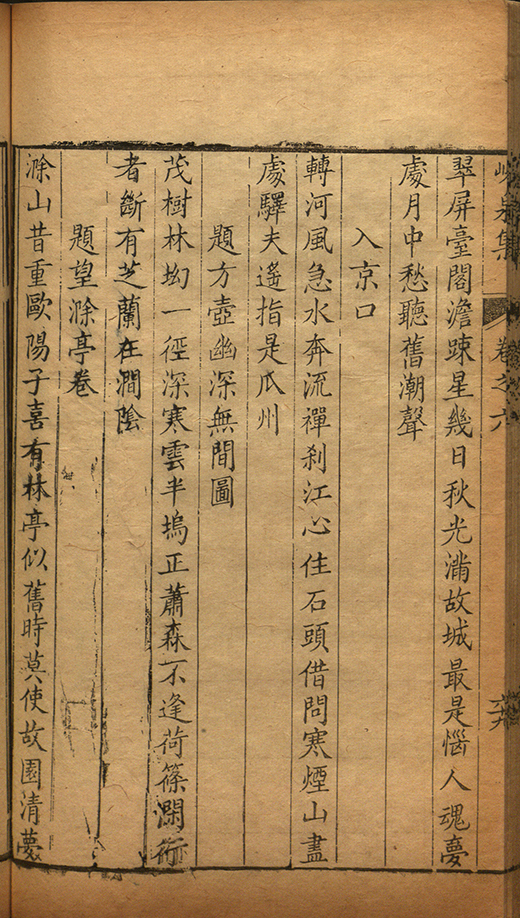 泉集 卷之六
翠屏臺閣澹踈星幾日秋光滿故城最是惱人魂夢
處月中愁聽舊潮聲
入京口
轉河風急水奔流禪刹江心住石頭借問寒煙山盡
處驛夫遙指是瓜州
題方壺幽深無間圖
茂樹林坳一徑深寒雲半塢正蕭森不逢荷篠
者斷有芝蘭在澗陰
題望滁亭卷
滁山昔重歐陽子喜有林亭似舊時莫使故園清夢